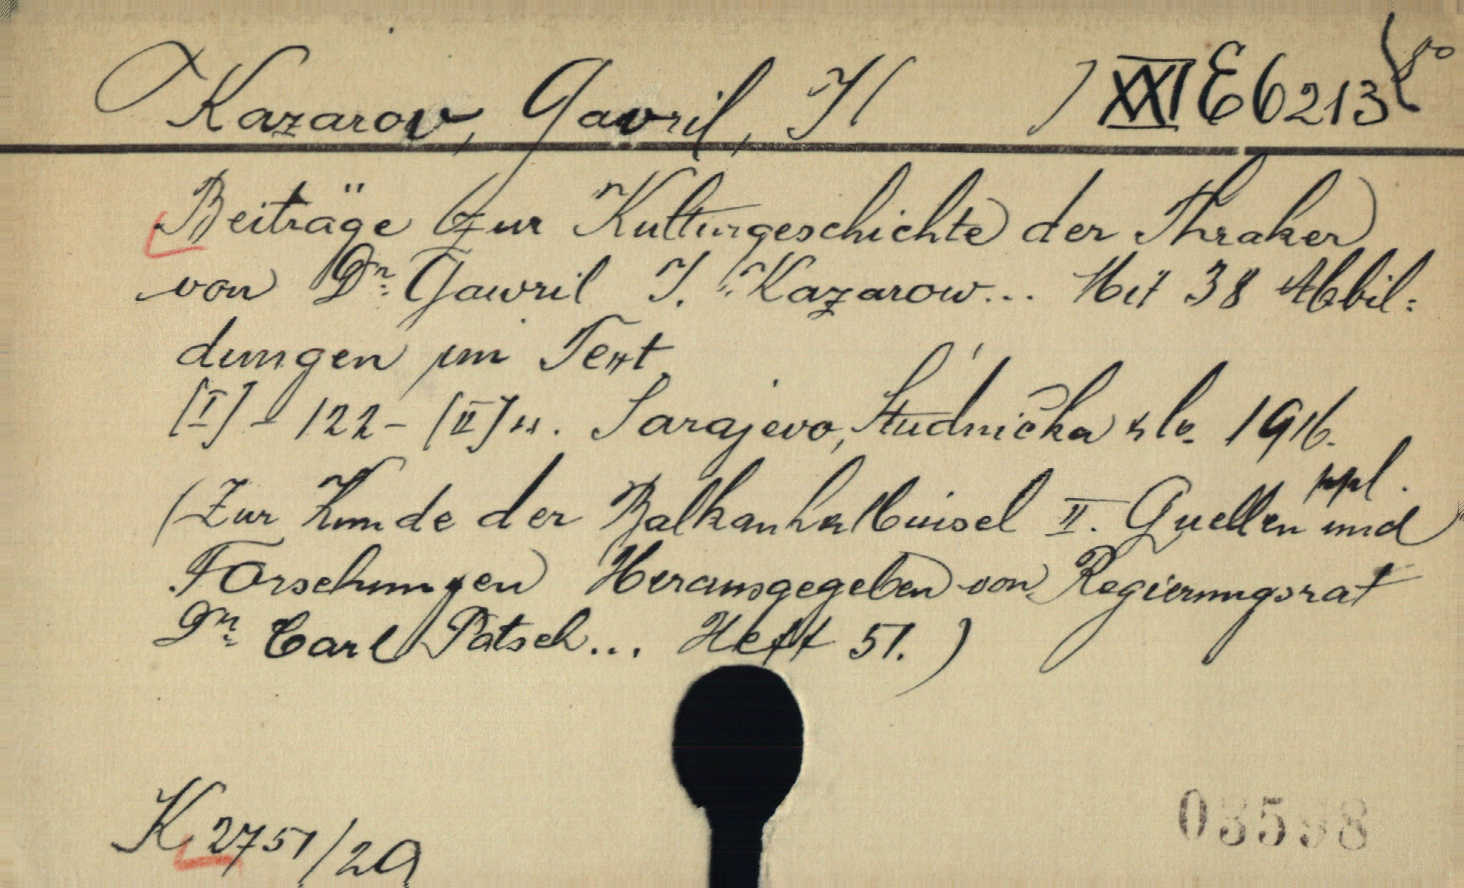 Kazarov, Gavril, I( ) XXI E 6213 8°
Beiträge zur Kulturgeschichte der Thraker
von Dr. Gawril I. Kazarow... Mit 38 Abbil:
dungen im Text.
[I] - 122 - [II] s. Sarajevo, Studnička 1916.
ppl.
(Zur Kunde der Balkanhalbinsel II. Quellen und
Forschungen Herausgegeben von Regierungsrat
Dr. Carl Patsch... Heft 51.)
K 2751/29
03598